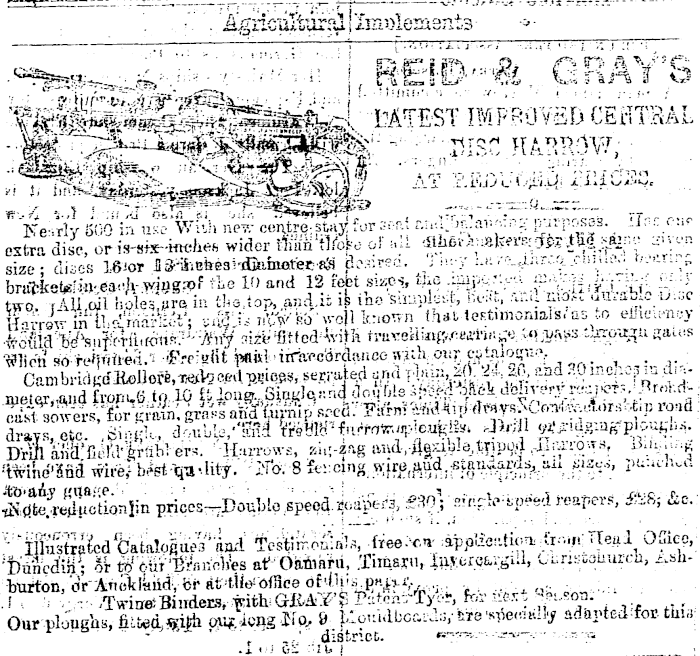 Agricultural Implements
REID & GRAY'S
LATEST IMPROVED CENTRAL
DISC HARROW,
AT REDUCED PRICES.
Nearly 500 in use With new centre stay for seat and balancing purposes. Has one
extra disc, or is six inches wider than those of all other makers for the same given
size; discs 16 or 18 inches Diameter as desired. They have three chilled bearing
brackets in each wing of the 10 and 12 feet sizes, the imported makes having only
two. All oil holes are in the top, and it is the simplest, best, and most durable Disc
Harrow in the market; and is now so well known that testimonials as to efficiency
would be superfluous. Any size fitted with travelling carriage to pass through gates
when so required. Freight paid in accordance with our catalogue.
Cambridge Rollers, reduced prices, serrated and plain, 20, 24, 26, and 30 inches in dia-
meter, and from 6 to 10 ft long. Single and double speed back delivery reapers. Broad-
cast sowers, for grain, grass and turnip seed. Farm and tip drays. Contractors' tip
drays, etc. Single, double, and treble furrow ploughs. Drill or ridging ploughs.
Drill and field grubbers. Harrows, zig-zag and flexible tripod Harrows. Binding
twine and wire, best quality. No. 8 fencing wire and standards, all sizes, punched
to any guage.
Note reduction in prices—Double speed reapers, £30; single speed reapers, £28; &c.
Illustrated Catalogues and Testimonials, free on application from Head Office,
Dunedin; or to our Branches at Oamaru, Timaru, Invercargill, Christchurch, Ash-
burton, or Auckland, or at the office of this paper.
Twine Binders, with GRAY'S Patent Tyer, for next Season.
Our ploughs, fitted with our long No. 9 Mouldboards, are specially adapted for this
district.